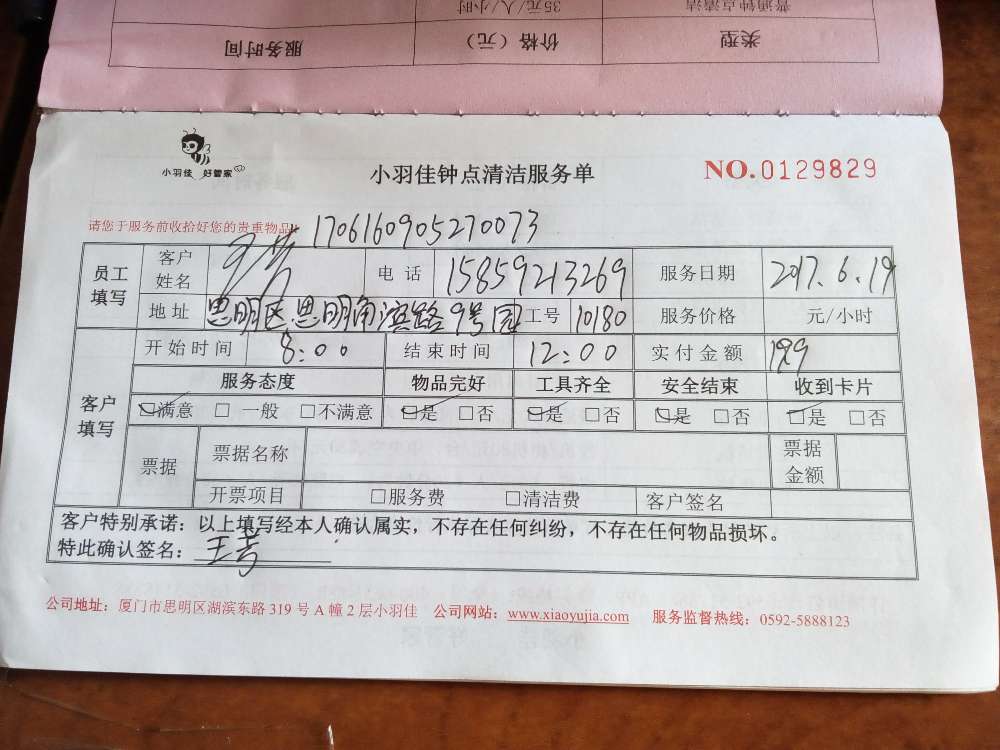 普通钟点清洁 35元/人/小时
类型 价格（元） 服务时间
小羽佳 好管家
小羽佳钟点清洁服务单
NO.0129829
请您于服务前收拾好您的贵重物品!
1706160905270073
员工填写 客户姓名 电话 15859213269 服务日期 2017.6.19
地址 思明区思明角滨路9号园 工号 10180 服务价格 元/小时
客户填写 开始时间 8:00 结束时间 12:00 实付金额 199
服务态度 物品完好 工具齐全 安全结束 收到卡片
☑满意 □ 一般 □不满意 ☑是 □否 ☑是 □否 ☑是 □否 ☑是 □否
票据 票据名称 票据金额
开票项目 □服务费 □清洁费 客户签名
客户特别承诺：以上填写经本人确认属实，不存在任何纠纷，不存在任何物品损坏。
特此确认签名：王芳
公司地址：厦门市思明区湖滨东路 319 号 A 幢 2 层小羽佳 公司网站：www.xiaoyujia.com 服务监督热线：0592-5888123